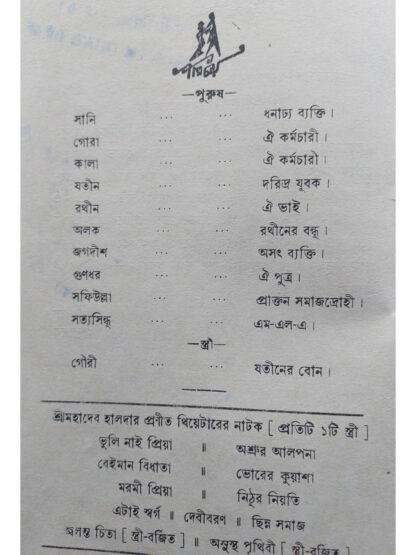 পরিচয়
—পুরুষ—
সানি ... ... ধনাঢ্য ব্যক্তি।
গোরা ... ... ঐ কর্মচারী।
কালা ... ... ঐ কর্মচারী।
যতীন ... ... দরিদ্র যুবক।
রথীন ... ... ঐ ভাই।
অলক ... ... রথীনের বন্ধু।
জগদীশ ... ... অসৎ ব্যক্তি।
গুণধর ... ... ঐ পুত্র।
সফিউল্লা ... ... প্রাক্তন সমাজদ্রোহী।
সত্যসিন্ধু ... ... এম-এল-এ।
—স্ত্রী—
গৌরী ... ... যতীনের বোন।
শ্রীমহাদেব হালদার প্রণীত থিয়েটারের নাটক [ প্রতিটি ১টি স্ত্রী ]
ভুলি নাই প্রিয়া ॥ অশ্রুর আলপনা
বেইমান বিধাতা ॥ ভোরের কুয়াশা
মরমী প্রিয়া ॥ নিঠুর নিয়তি
এটাই স্বর্গ ॥ দেবীবরণ ॥ ছিন্ন সমাজ
জলন্ত চিতা [ স্ত্রী-বর্জিত ] ॥ অসুস্থ পৃথিবী [ স্ত্রী-বর্জিত ]